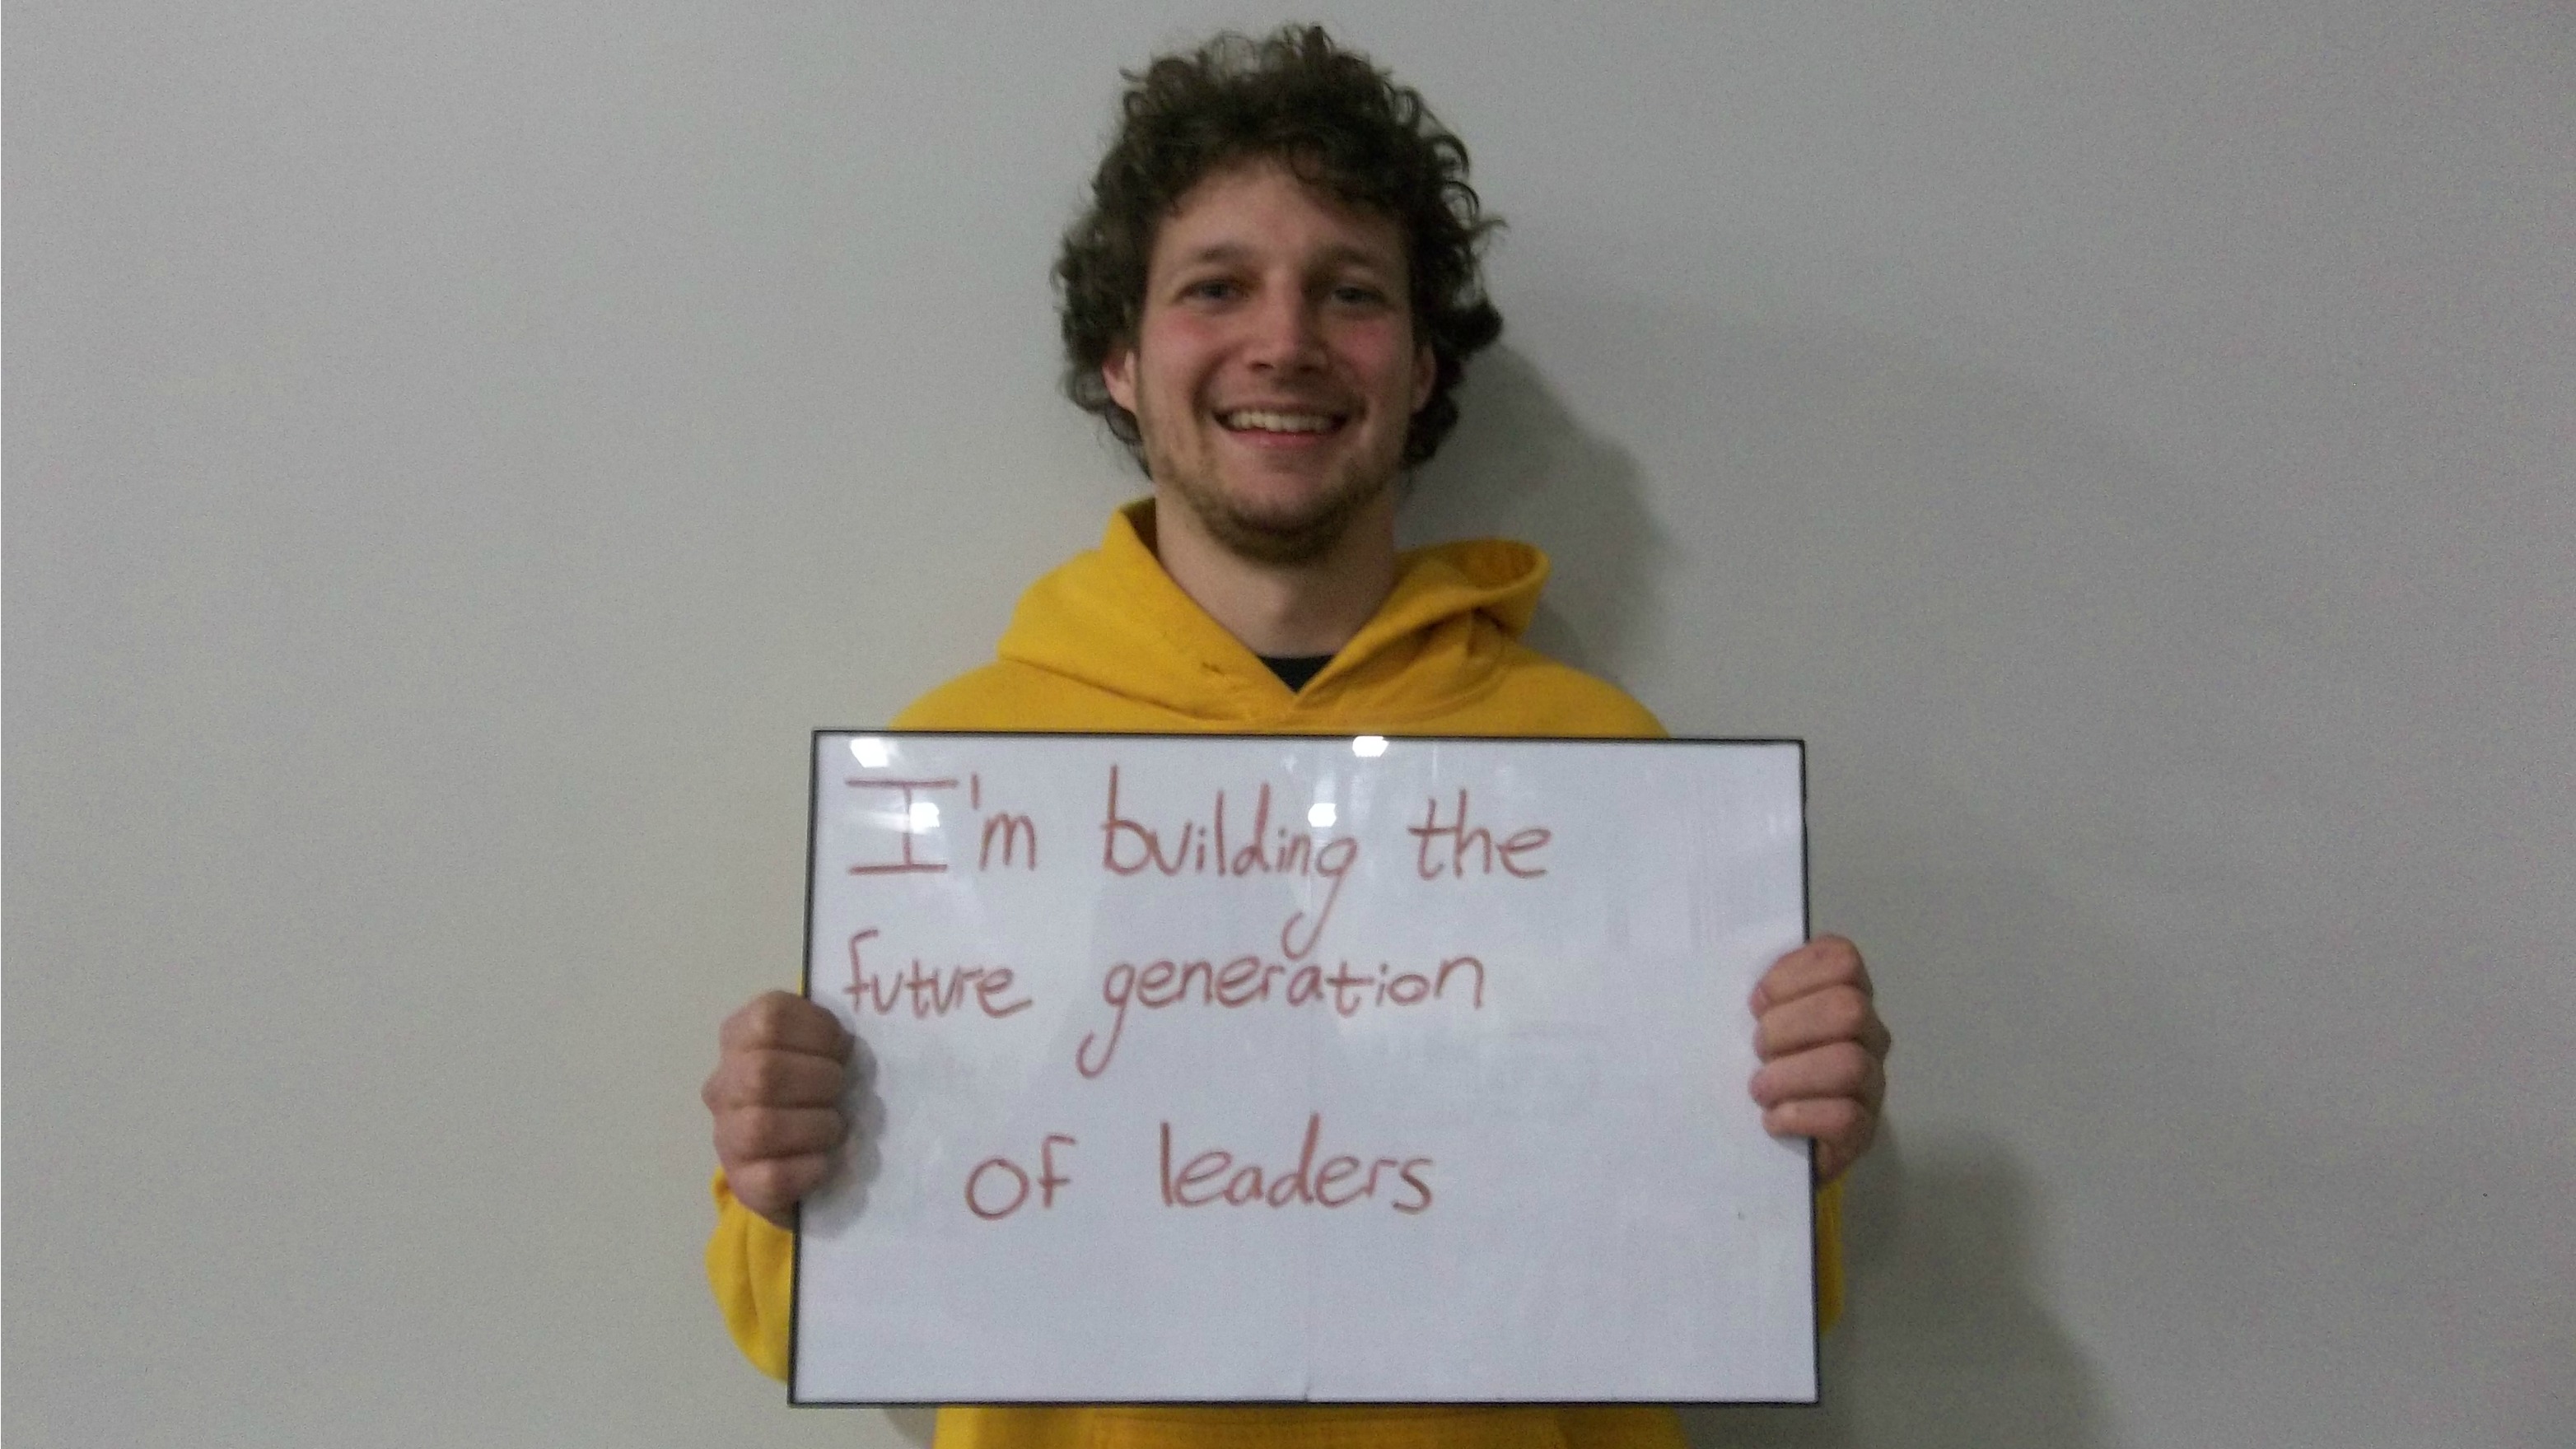 I'm building the
future generation
of leaders